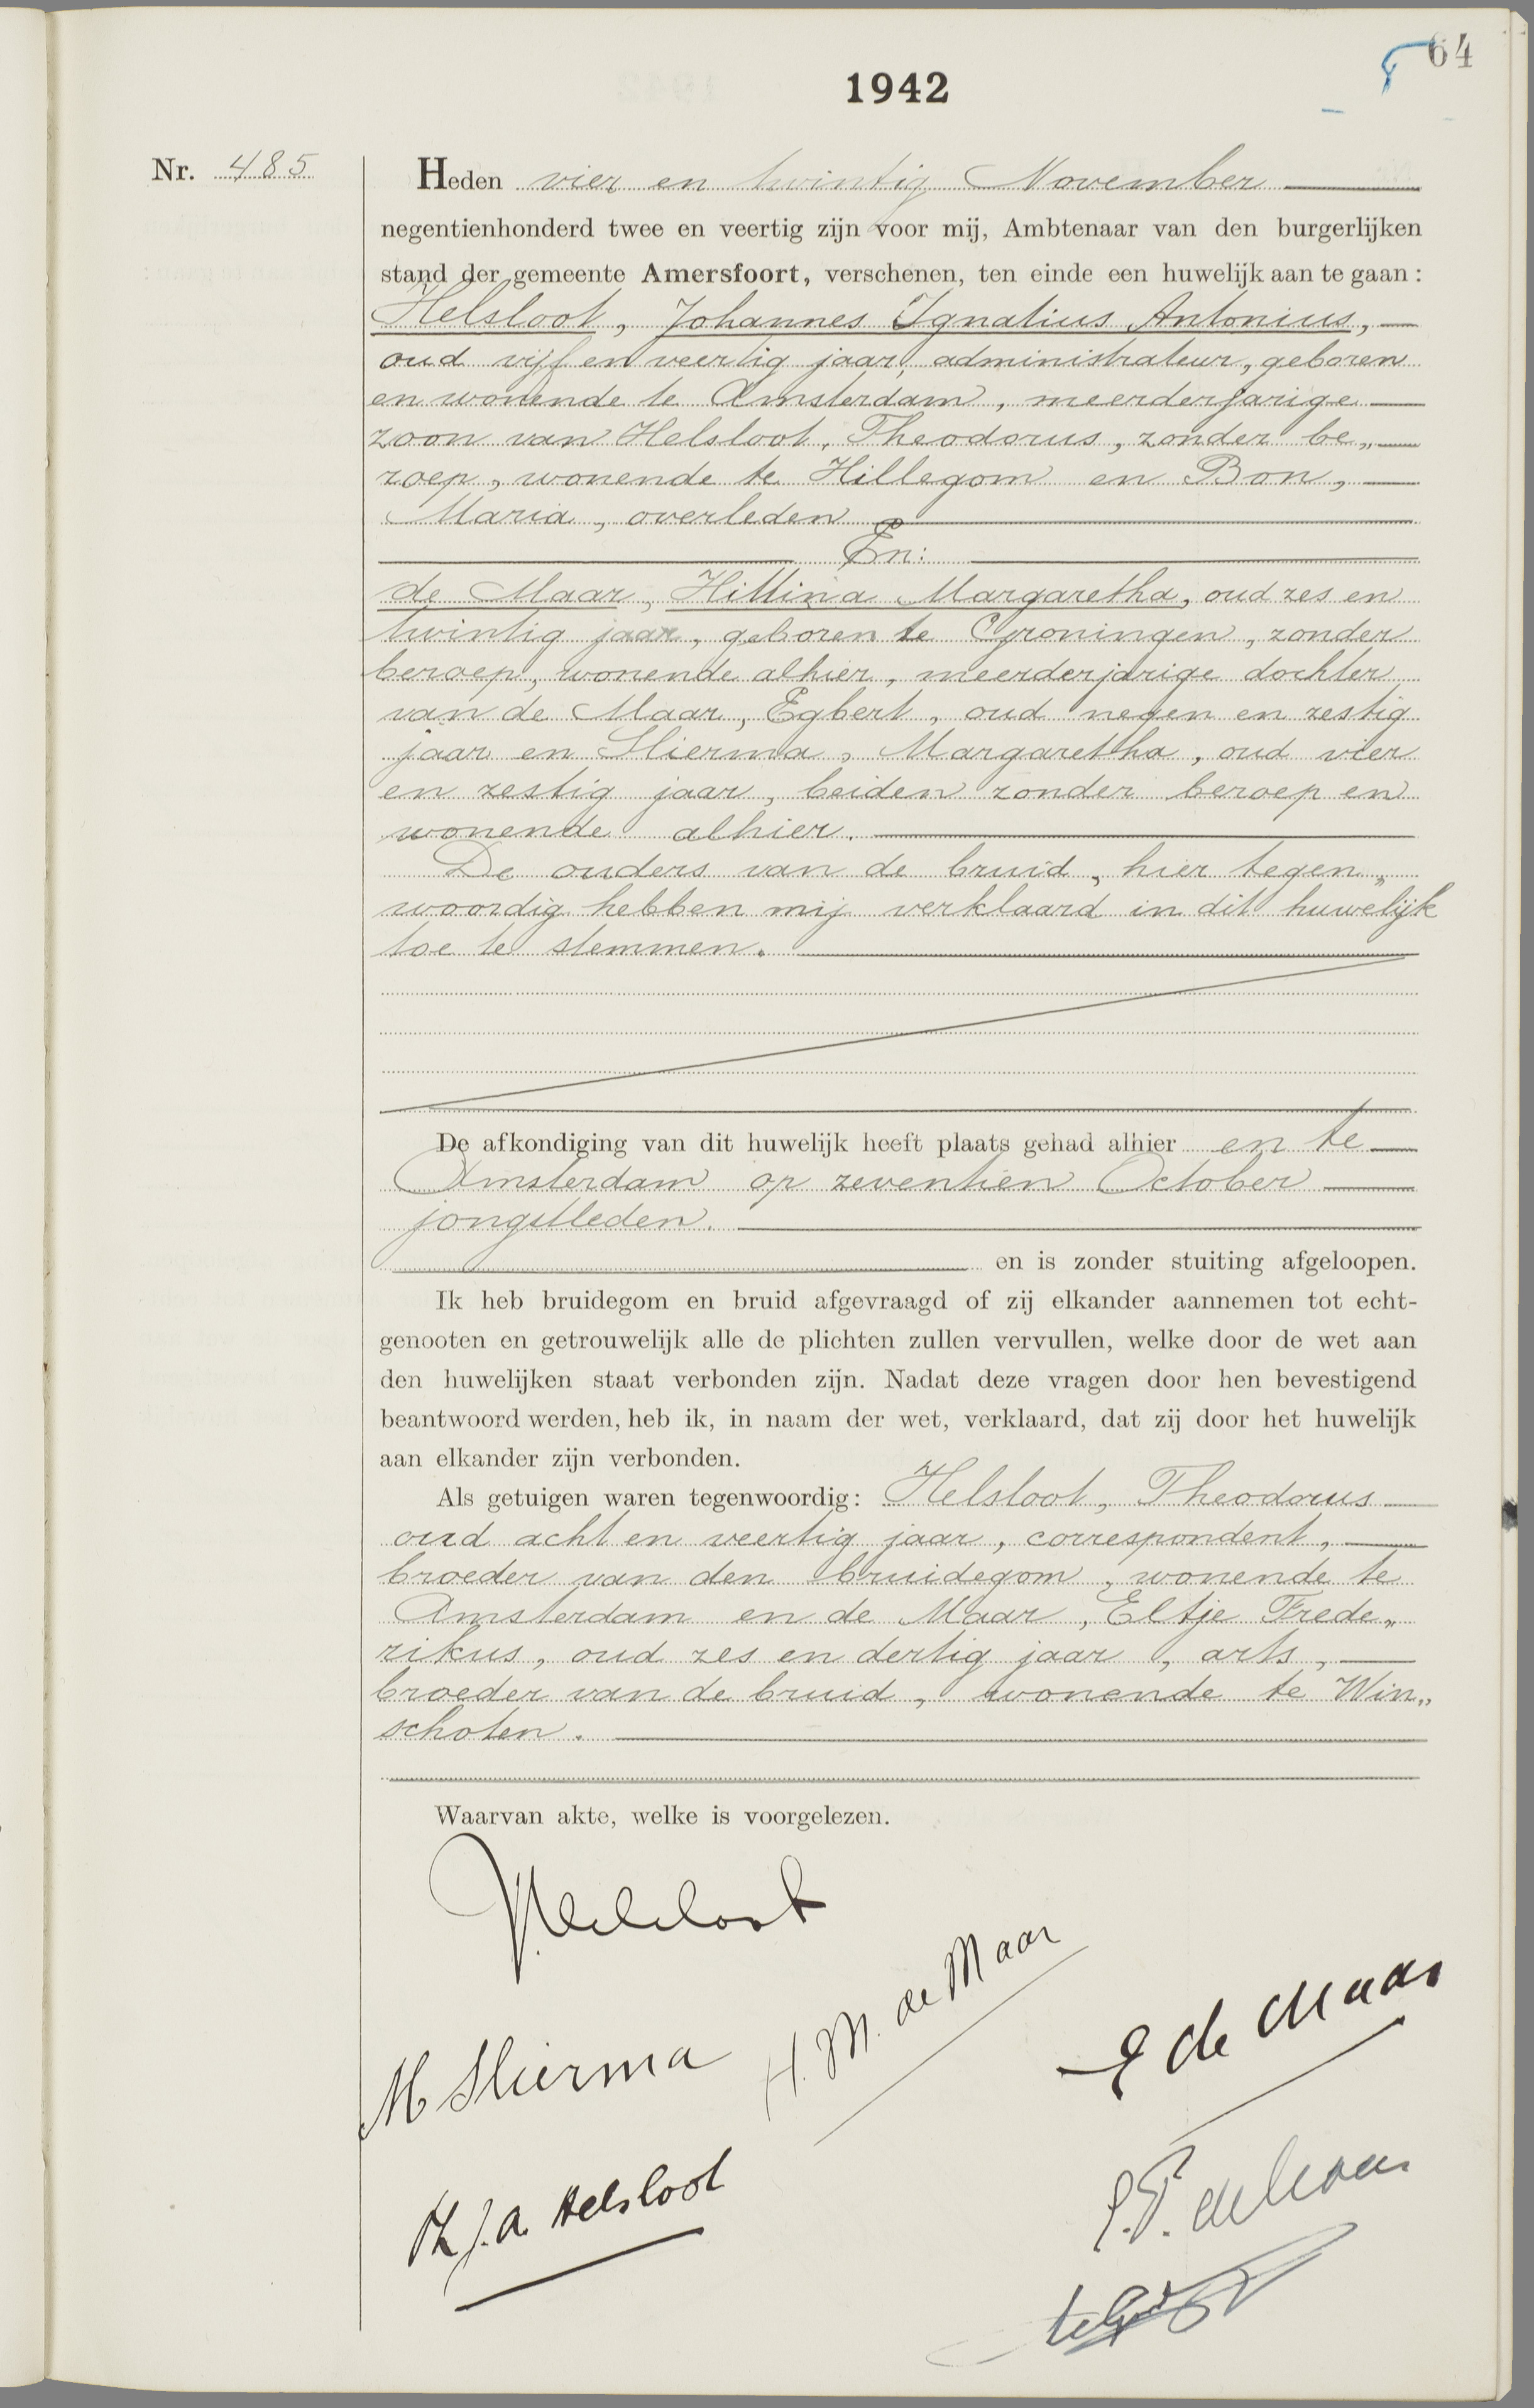 64
1942
Nr. 485
Heden vier en twintig November
negentienhonderd twee en veertig zijn voor mij, Ambtenaar van den burgerlijken
stand der gemeente Amersfoort, verschenen, ten einde een huwelijk aan te gaan:
Helsloot, Johannes Ignatius Antonius,
oud vijf en veertig jaar, administrateur, geboren
en wonende te Amsterdam, meerderjarige
zoon van Helsloot, Theodorus, zonder be„
roep, wonende te Hillegom en Bon,
Maria, overleden
En:
de Maar, Hillina Margaretha, oud zes en
twintig jaar, geboren te Groningen, zonder
beroep, wonende alhier, meerderjarige dochter
van de Maar, Egbert, oud negen en zestig
jaar en Slierma, Margaretha, oud vier
en zestig jaar, beiden zonder beroep en
wonende alhier.
De ouders van de bruid, hier tegen„
woordig hebben mij verklaard in dit huwelijk
toe te stemmen.
De afkondiging van dit huwelijk heeft plaats gehad alhier en te
Amsterdam op zeventien October
jongstleden.
en is zonder stuiting afgeloopen.
Ik heb bruidegom en bruid afgevraagd of zij elkander aannemen tot echt-
genooten en getrouwelijk alle de plichten zullen vervullen, welke door de wet aan
den huwelijken staat verbonden zijn. Nadat deze vragen door hen bevestigend
beantwoord werden, heb ik, in naam der wet, verklaard, dat zij door het huwelijk
aan elkander zijn verbonden.
Als getuigen waren tegenwoordig: Helsloot, Theodorus
oud acht en veertig jaar, correspondent,
broeder van den bruidegom, wonende te
Amsterdam en de Maar, Eltje Frede„
rikus, oud zes en dertig jaar, arts,
broeder van de bruid, wonende te Win„
schoten.
Waarvan akte, welke is voorgelezen.
Helsloot
H. M. de Maar
E de Maar
M Slierma
Th J. A. Helsloot
E. F. de Maar